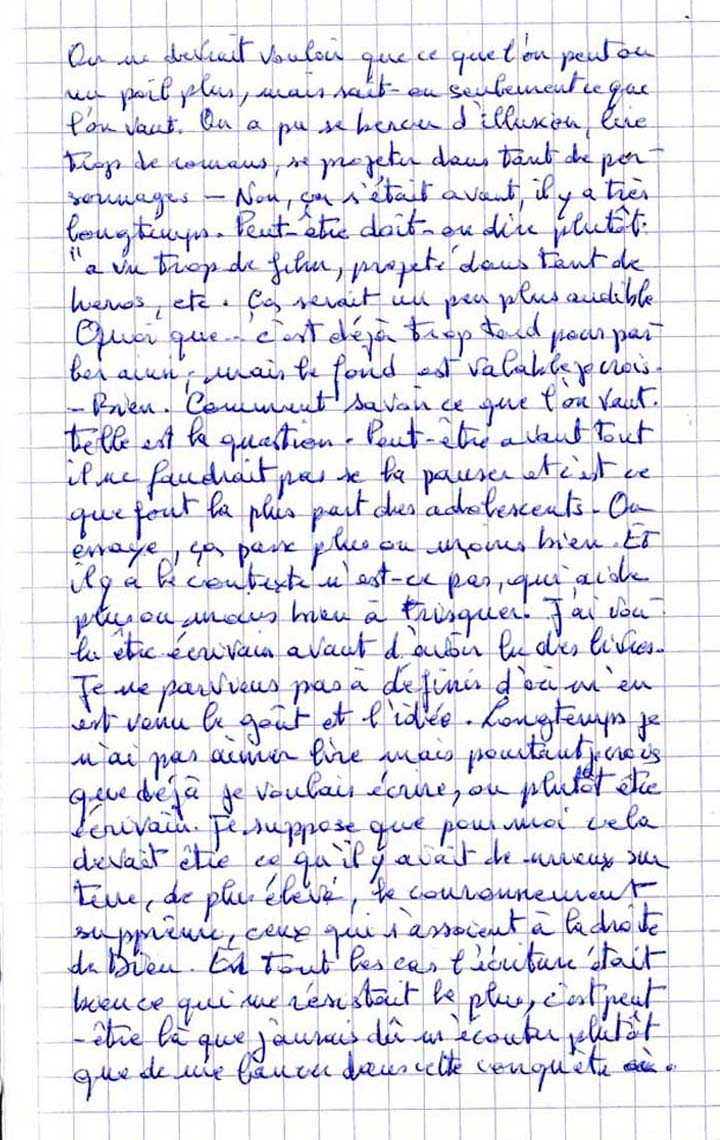 On ne devrait vouloir que ce que l'on peut ou
un poil plus, mais sait-on seulement ce que
l'on vaut. On a pu se bercer d'illusion, lire
trop de romans, se projeter dans tant de per-
sonnages – Non, ça c'était avant, il y a très
longtemps. Peut-être doit-on dire plutôt:
"a vu trop de film, projeté dans tant de
heros, etc. Ça serait un peu plus audible
Quoi que... c'est déjà trop tard pour par-
ler ainsi; mais le fond est valable je crois.
- Bien. Comment savoir ce que l'on vaut.
telle est la question. Peut-être avant tout
il ne faudrait pas se la pauser et c'est ce
que font la plus part des adolescents. On
essaye, ça passe plus ou moins bien. Et
il y a le contexte n'est-ce pas, qui aide
plus ou moins bien à risquer. J'ai vou-
lu être écrivain avant d'avoir lu des livres.
Je ne parviens pas à définir d'où m'en
est venu le goût et l'idée. Longtemps je
n'ai pas aimer lire mais pourtant je crois
que déjà je voulais écrire, ou plutôt être
écrivain. Je suppose que pour moi cela
devait être ce qu'il y avait de mieux sur
terre, de plus élevé, le couronnement
supprême, ceux qui s'assoient à la droite
de Dieu. En tout les cas l'écriture était
bien ce qui me résistait le plus, c'est peut
-être là que j'aurais dû m'écouter plutôt
que de me lancer dans cette conquête